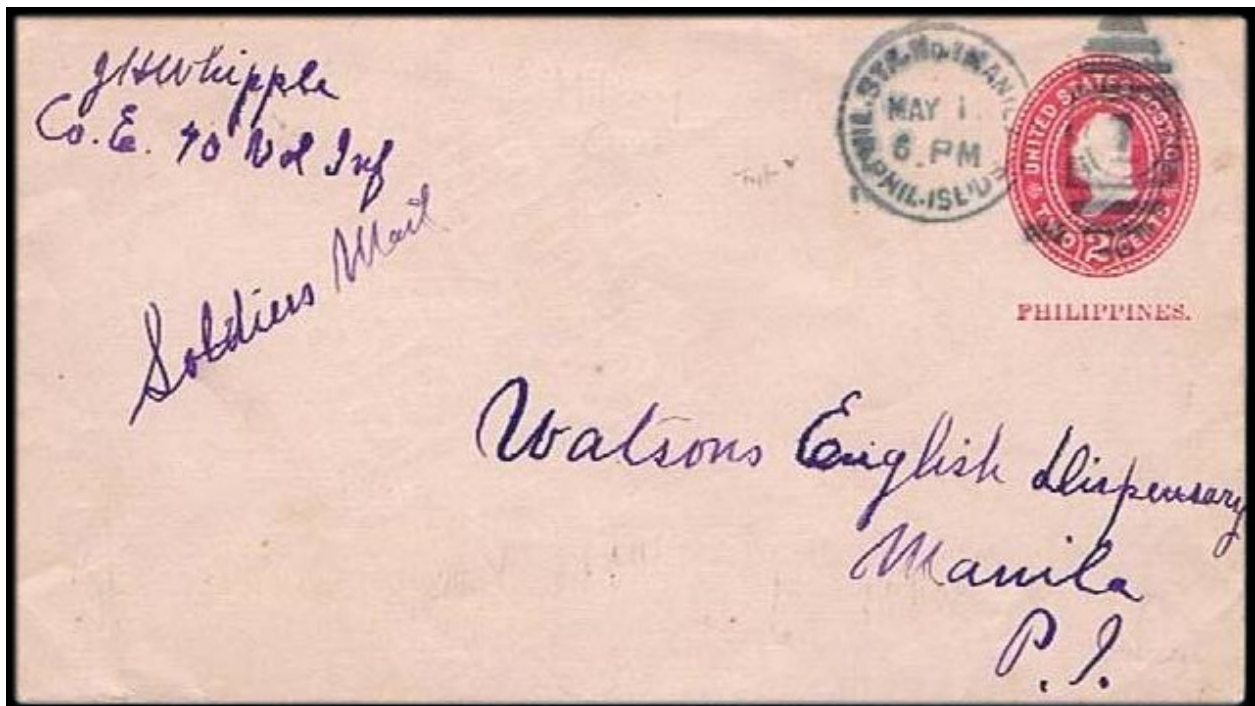 J H Whipple
Co. E. 40 Vol Inf
Soldiers Mail
MIL. STA. No. 1 MANILA
MAY 1.
6 PM
PHIL. ISL'DS
UNITED STATES POSTAGE
TWO 2 CENTS
PHILIPPINES.
Watsons English Dispensary
Manila
P. I.